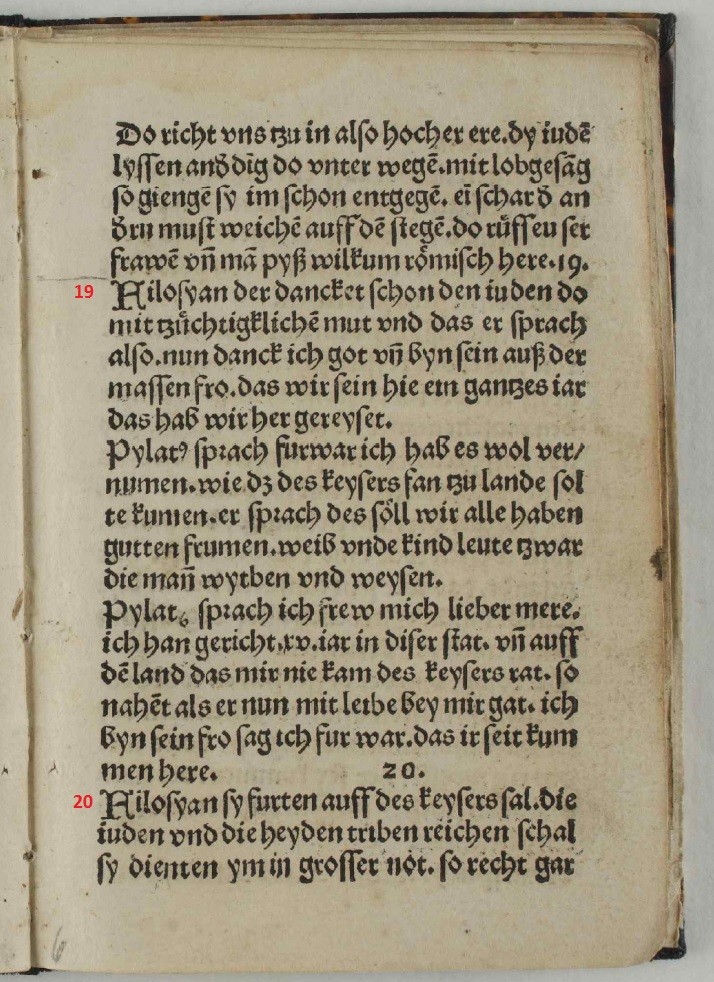 Do richt vns tzu in also hocher ere.dy iudē
lyssen andꝺdig do vnter wegē.mit lobgesāg
so giengē sy im schon entgegē. eī schar ꝺ an
ꝺrn must weichē auff dē stegē.do rüffeu ser
frawē vn̄ mā pyß wilkum römisch here.19.
19 Filosyan der dancket schon den iuden do
mit tzüchtigklichē mut vnd das er sprach
also.nun danck ich got vn̄ byn sein auß der
massen fro.das wir sein hie ein gantzes iar
das hab wir her gereyset.
Pylatꝰ sprach furwar ich hab es wol ver/
numen.wie dꝫ des keysers fan tzu lande sol
te kumen.er sprach des söll wir alle haben
gutten frumen.weib vnde kind leute tzwar
die man̄ wytben vnd weysen.
Pylatꝰ sprach ich frew mich lieber mere.
ich han gericht.xv.iar in diser stat. vn̄ auff
dē land das mir nie kam des keysers rat. so
nahēt als er nun mit leibe bey mir gat. ich
byn sein fro sag ich fur war.das ir seit kum
men here. 20.
20 Filosyan sy furten auff des keysers sal.die
iuden vnd die heyden triben reichen schal
sy dienten ym in grosser not. so recht gar
6